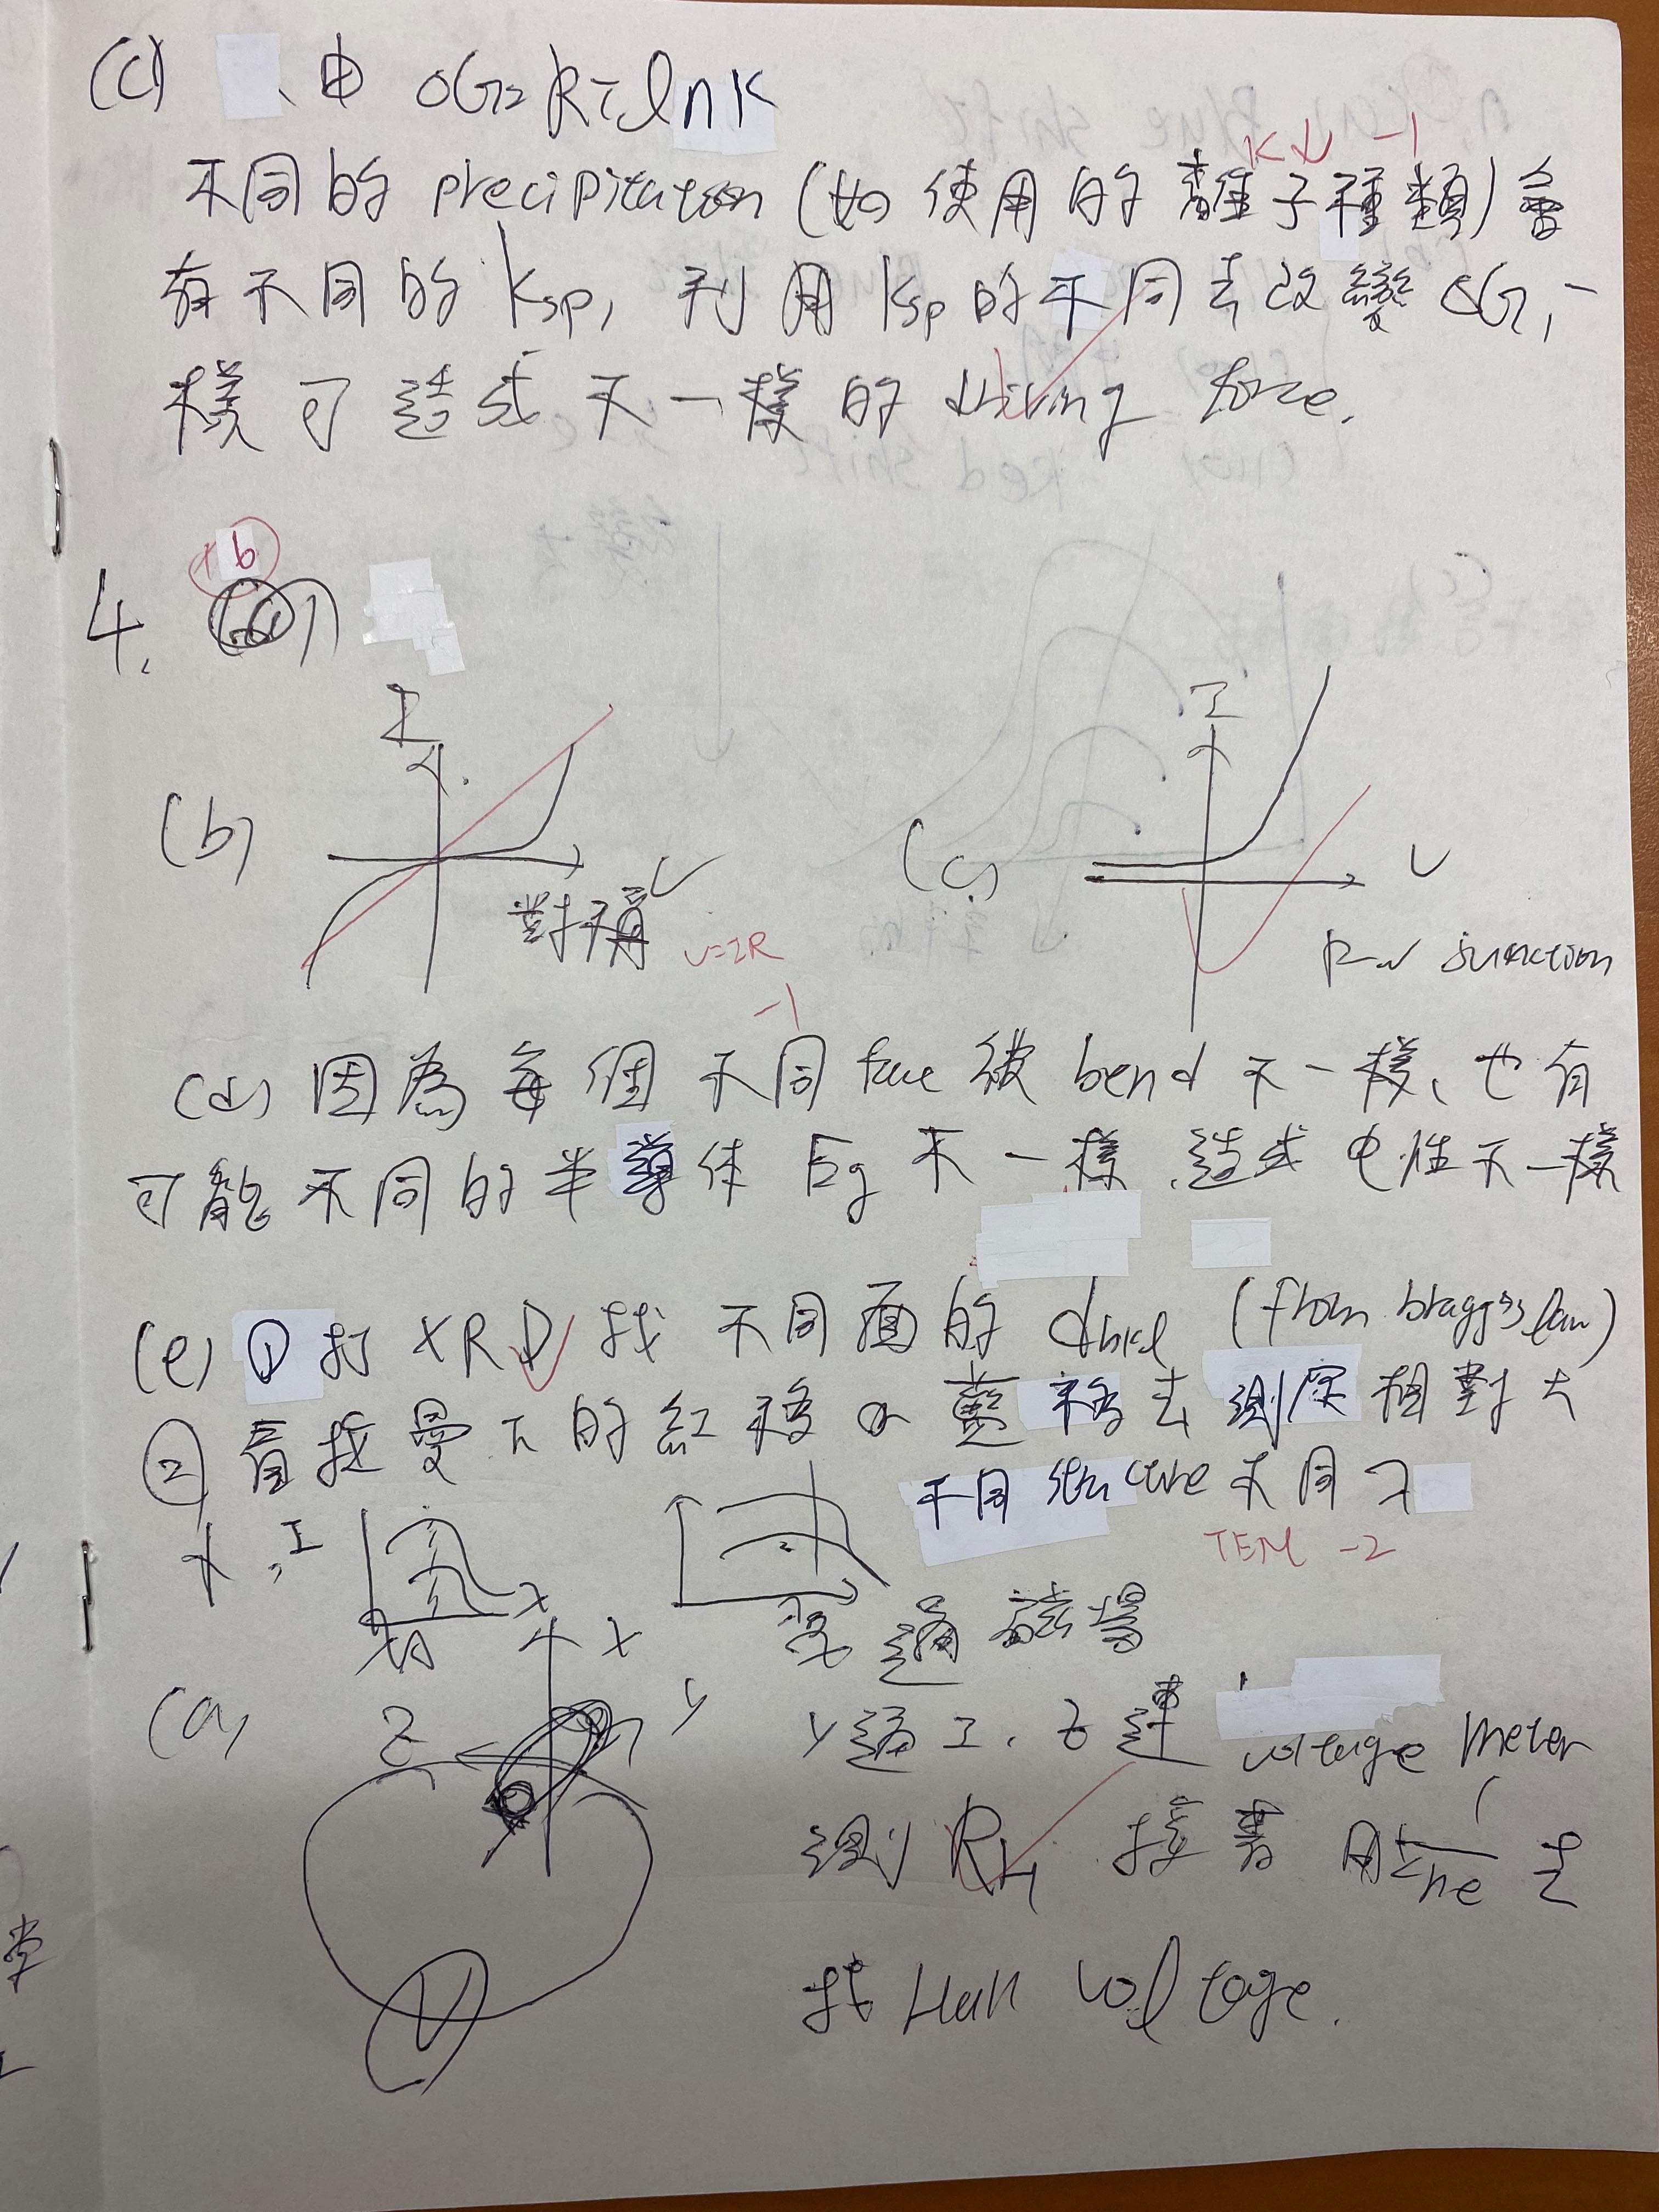 (c) 、由 ΔG=RTlnK
K↓ -1
不同的 precipitation (如使用的離子種類) 會
有不同的 Ksp, 利用 Ksp 的不同去改變 ΔG, 一
樣可造成不一樣的 driving force.
+6
4.
I
I
(b)
V
(c)
V
對稱
V=IR
P-N junction
-1
(d) 因為每個不同 face 被 bend 不一樣、也有
可能不同的半導体 Eg 不一樣.造成电性不一樣
(e) ① 打 XRD 找不同面的 dhkl (from bragg's law)
② 看拉曼下的紅移 or 藍移去測定相對大
不同 structure 不同 λ
TEM -2
I
λ
通磁場
X
(a)
Z
y
y通 I. Z 連 voltage meter
測 RH 接著用 1/ne 去
V
找 Hall voltage.